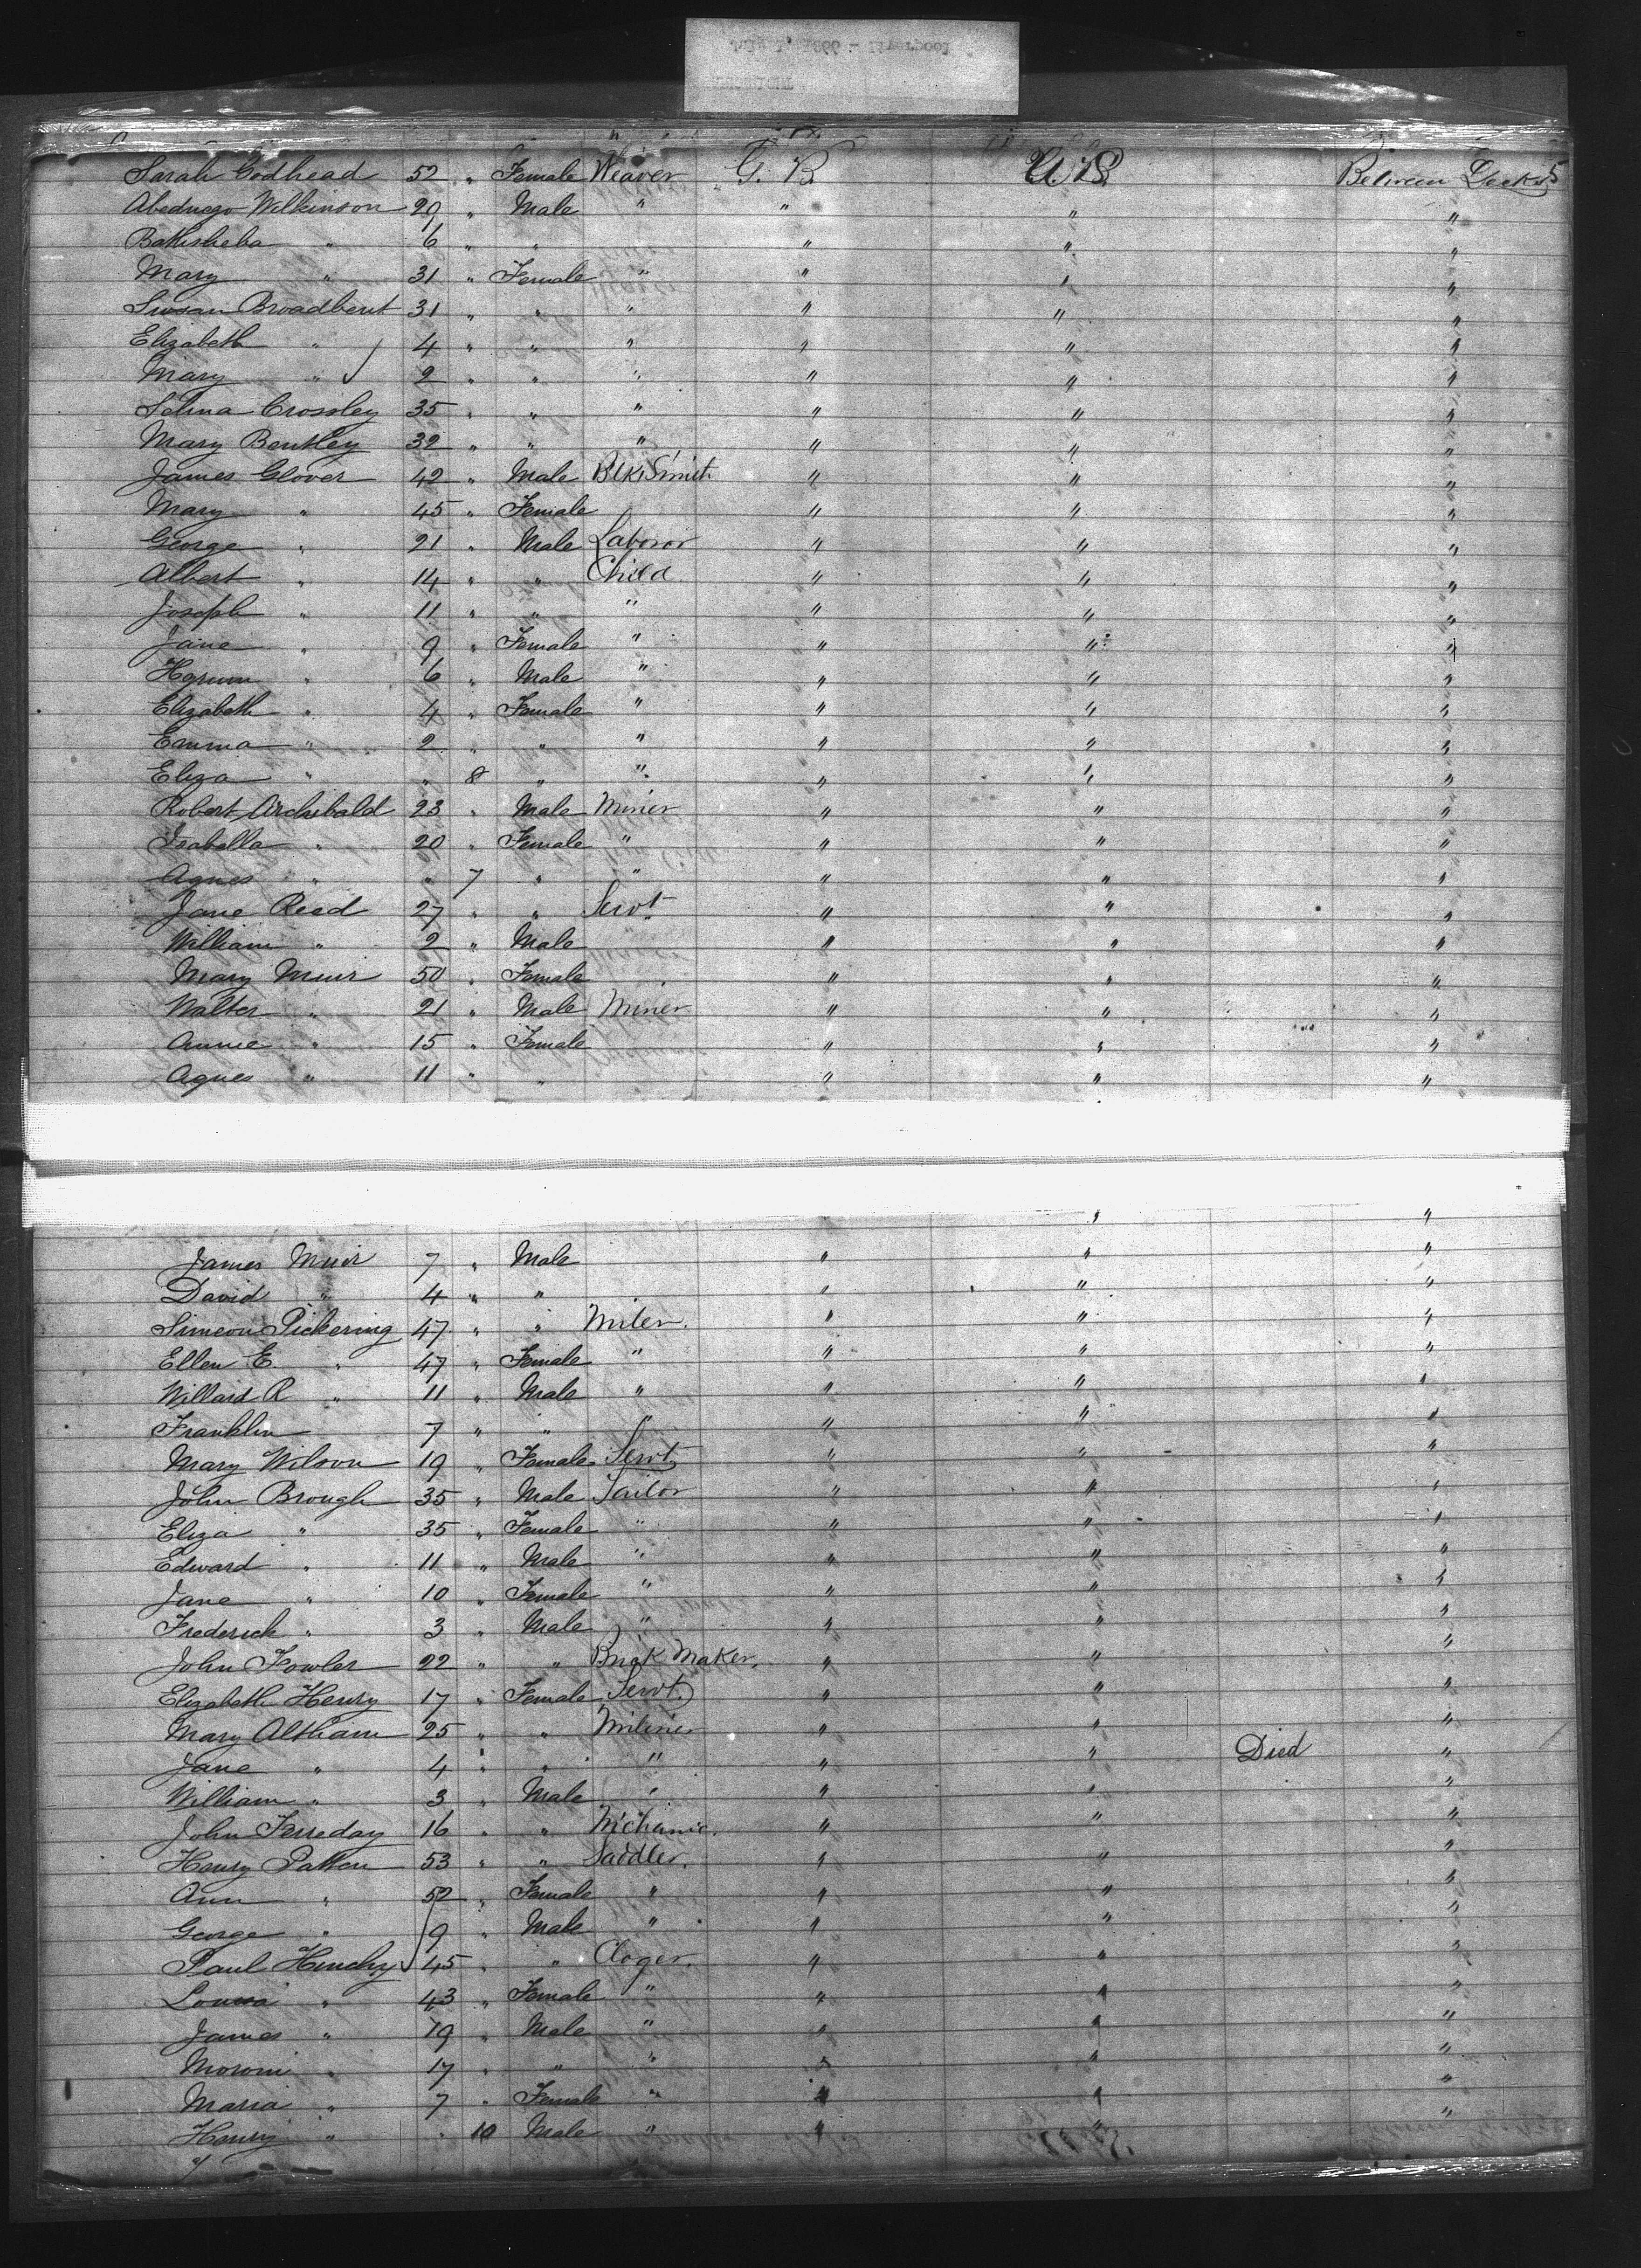 July 1, 1866 - Liverpool
Sarah Godhead 52 " Female Weaver G. B. U. S. Between Decks 5
Abednego Wilkinson 29 " Male " " " "
Bathsheba " 6 " " " " "
Mary " 31 " Female " " " "
Susan Broadbent 31 " " " " " "
Elizabeth " 4 " " " " " "
Mary " 2 " " " " " "
Selina Crossley 35 " " " " " "
Mary Bentley 32 " " " " " "
James Glover 42 " Male Blk Smith " " "
Mary " 45 " Female " " "
George " 21 " Male Laboror " " "
Albert " 14 " " Child " " "
Joseph " 11 " " " " " "
Jane " 9 " Female " " " "
Hyrum " 6 " Male " " " "
Elizabeth " 4 " Female " " " "
Emma " 2 " " " " " "
Eliza " " 8 " " " " "
Robert Archibald 23 " Male Miner " " "
Isabella " 20 " Female " " " "
Agnes " " 7 " " " " "
Jane Reed 27 " " Servt " " "
William " 2 " Male " " "
Mary Muir 50 " Female " " "
Walter " 21 " Male Miner " " "
Annie " 15 " Female " " "
Agnes " 11 " " " " "
" "
James Muir 7 " Male " " "
David " 4 " " " " "
Simeon Pickering 47 " " Miler " " "
Ellen E " 47 " Female " " " "
Willard R " 11 " Male " " " "
Franklin 7 " " " " " "
Mary Wilson 19 " Female Servt " " "
John Brough 35 " Male Tailor " " "
Eliza " 35 " Female " " " "
Edward " 11 " Male " " " "
Jane " 10 " Female " " " "
Frederick " 3 " Male " " " "
John Fowler 22 " " Brick Maker " " "
Elizabeth Henry 17 " Female Servt " " "
Mary Altham 25 " " Miliner " " "
Jane " 4 " " " " " Died "
William " 3 " Male " " " "
John Ferreday 16 " " Mchanic " " "
Henry Patten 53 " " Saddler " " "
Ann " 52 " Female " " " "
George " 9 " Male " " " "
Paul Hinchy 45 " " Cloger " " "
Louisa " 43 " Female " " " "
James " 19 " Male " " " "
Moroni " 17 " " " " " "
Maria " 7 " Female " " " "
Henry " " 10 Male " " " "